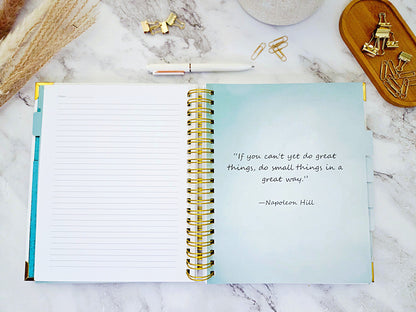 "If you can't yet do great
things, do small things in a
great way."
—Napoleon Hill